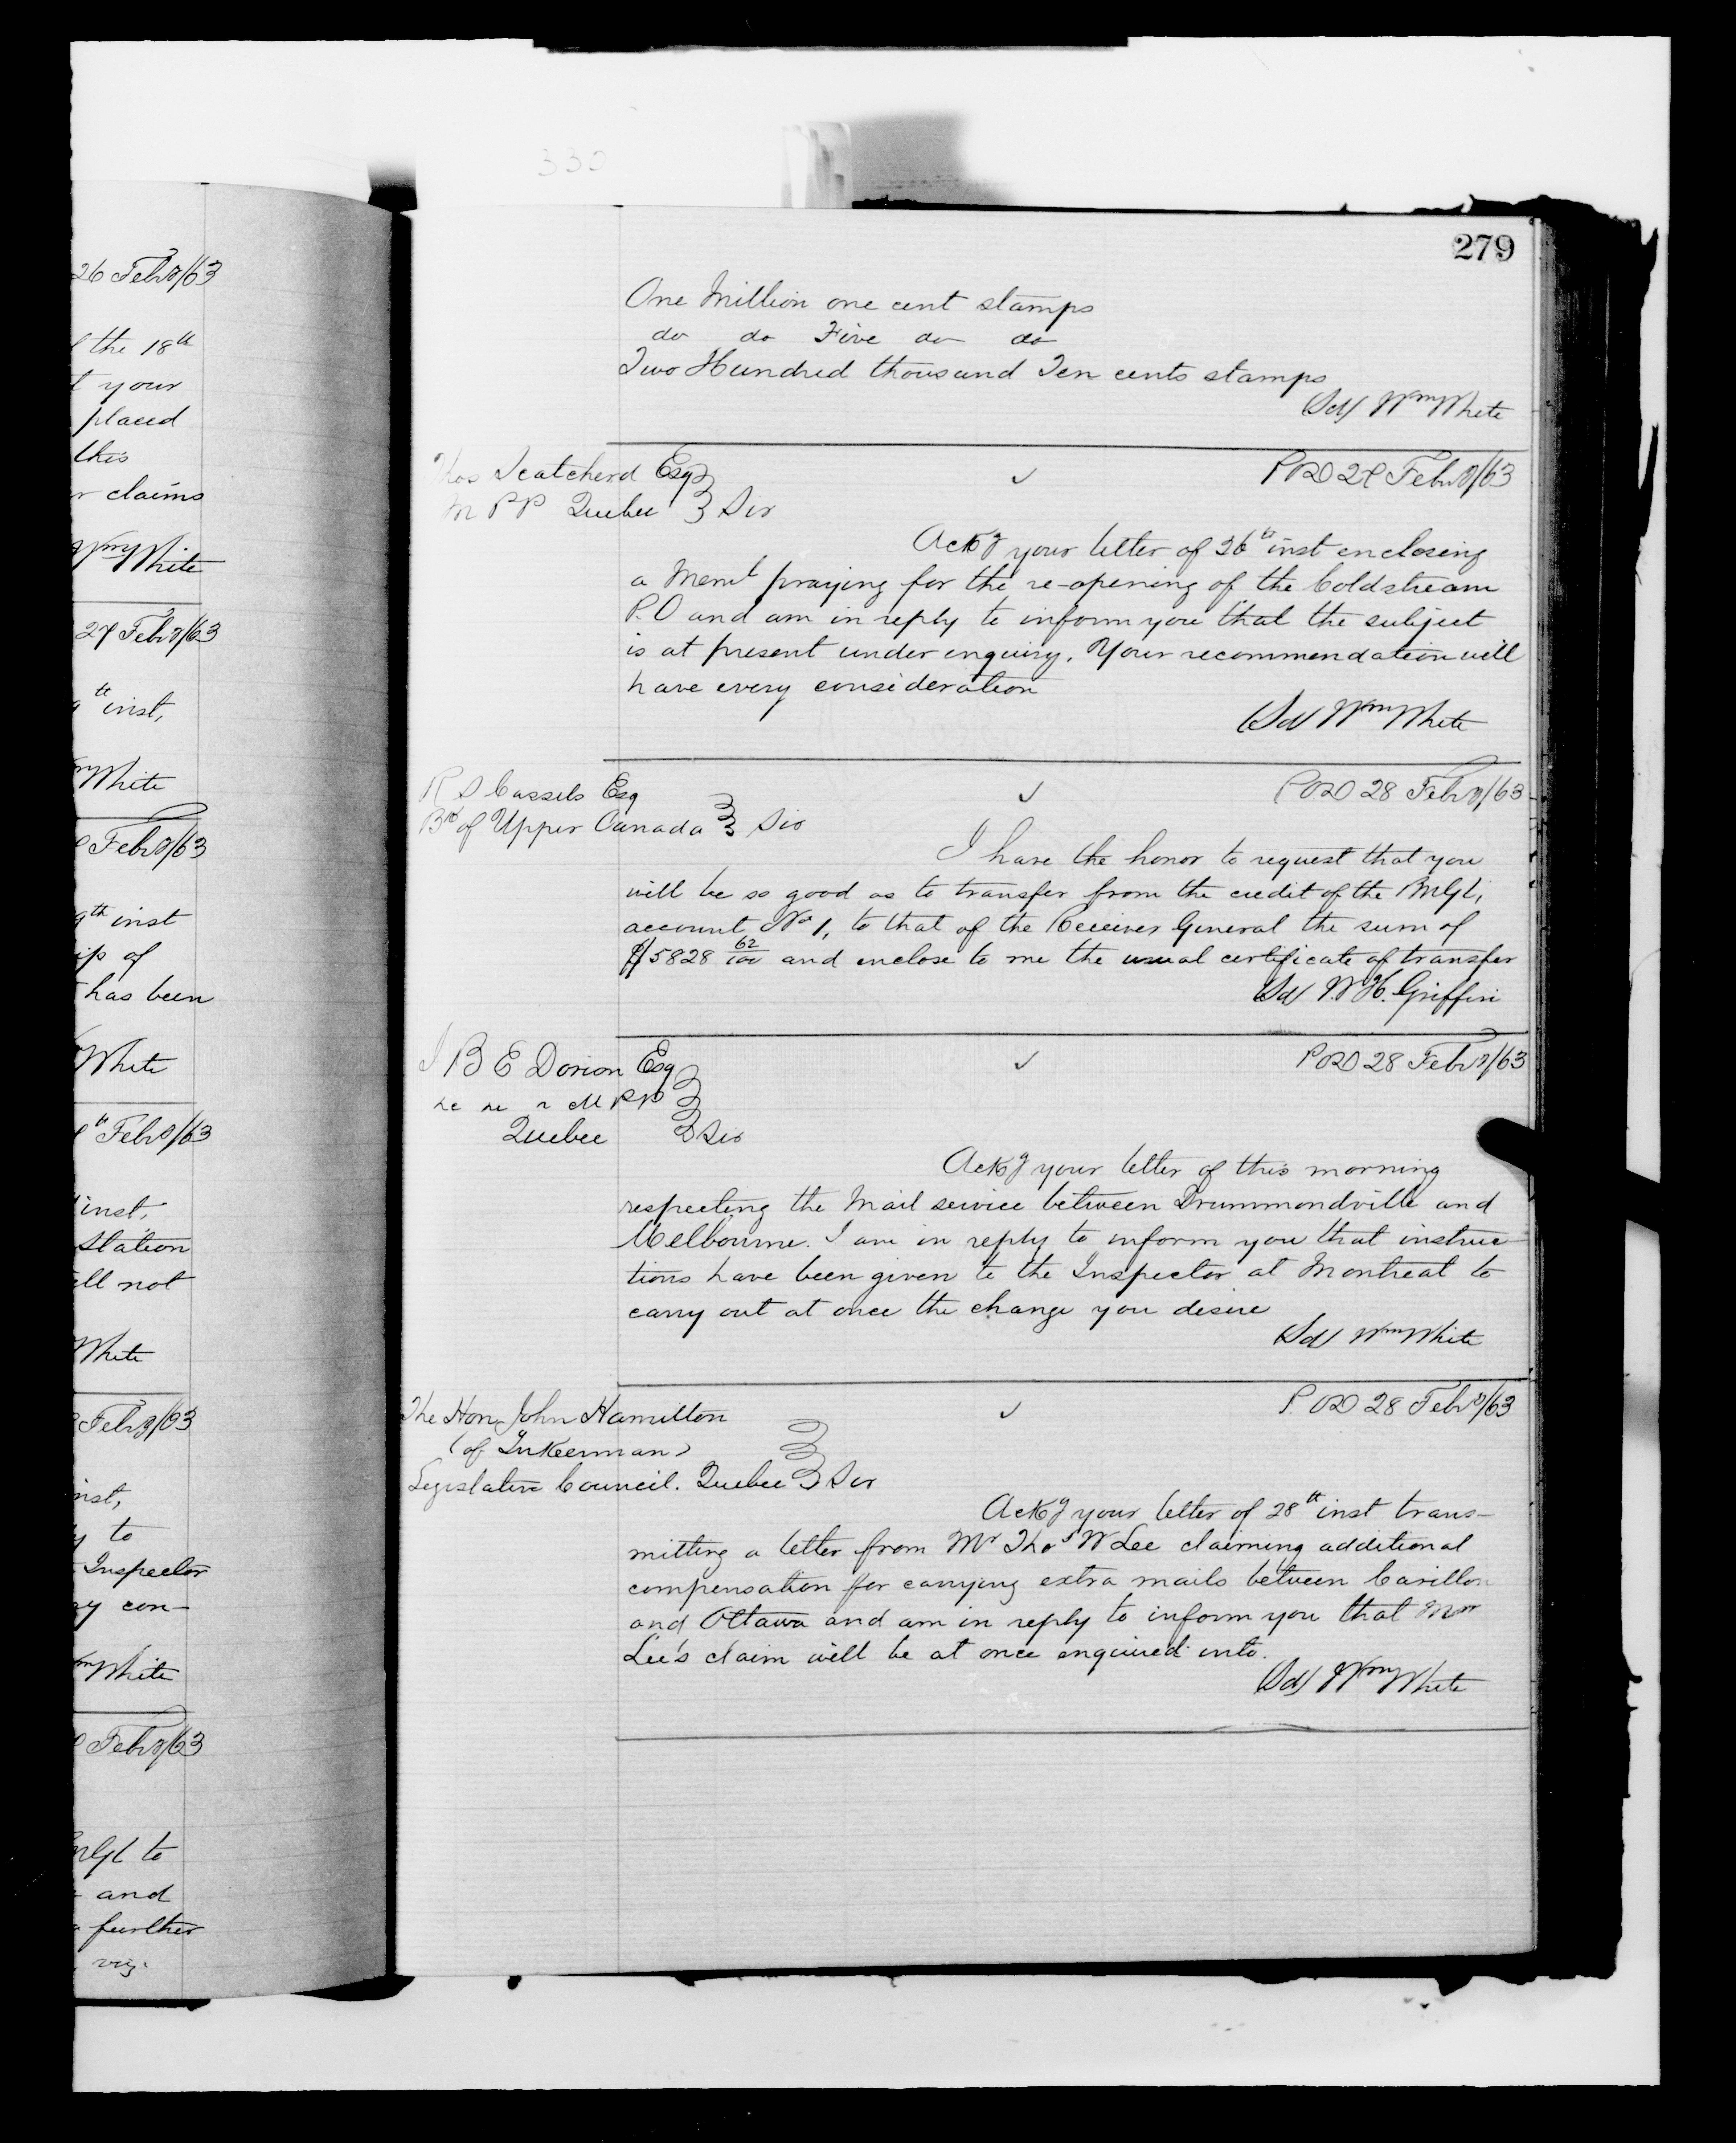 330
26 Febry/63
the 18th
your
placed
this
claims
Wm White
27 Febry/63
inst,
White
Febry/63
9th inst
of
has been
White
th Febry/63
inst,
Station
not
White
Febry/63
inst,
to
Inspector
con-
Wm White
Febry/63
to
and
further
viz.
279
One Million one cent stamps
do do Five do do
Two Hundred thousand Ten cents stamps
(Sd) Wm White
Thos Scatcherd Esq
M P P Quebec } Sir
POD 28 Febry/63
Ackg your letter of 26th inst enclosing
a Meml praying for the re-opening of the Coldstream
P.O and am in reply to inform you that the subject
is at present under enquiry. Your recommendation will
have every consideration
(Sd) Wm White
R S Cassels Esq
Bk of Upper Canada } Sir
POD 28 Febry/63
I have the honor to request that you
will be so good as to transfer from the credit of the PMGl,
account No 1, to that of the Receiver General the sum of
$5828 62/100 and enclose to me the usual certificate of transfer
Sd/ W.H. Griffin
J B E Dorion Esq
M P P
Quebec } Sir
POD 28 Febry/63
Ackg your letter of this morning
respecting the Mail service between Drummondville and
Melbourne. I am in reply to inform you that instruc
tions have been given to the Inspector at Montreal to
carry out at once the change you desire
(Sd) Wm White
The Hon John Hamilton
(of Inkerman)
Legislative Council. Quebec } Sir
P. OD 28 Febry/63
Ackg your letter of 28th inst trans-
mitting a letter from Mr Thos W Lee claiming additional
compensation for carrying extra mails between Carillon
and Ottawa and am in reply to inform you that Mr
Lee's claim will be at once enquired into.
(Sd) Wm White